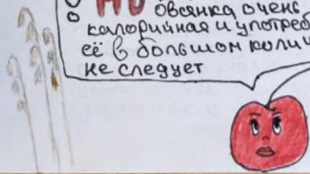 Но овсянка очень
калорийная и употреб
её в большом коли
не следует